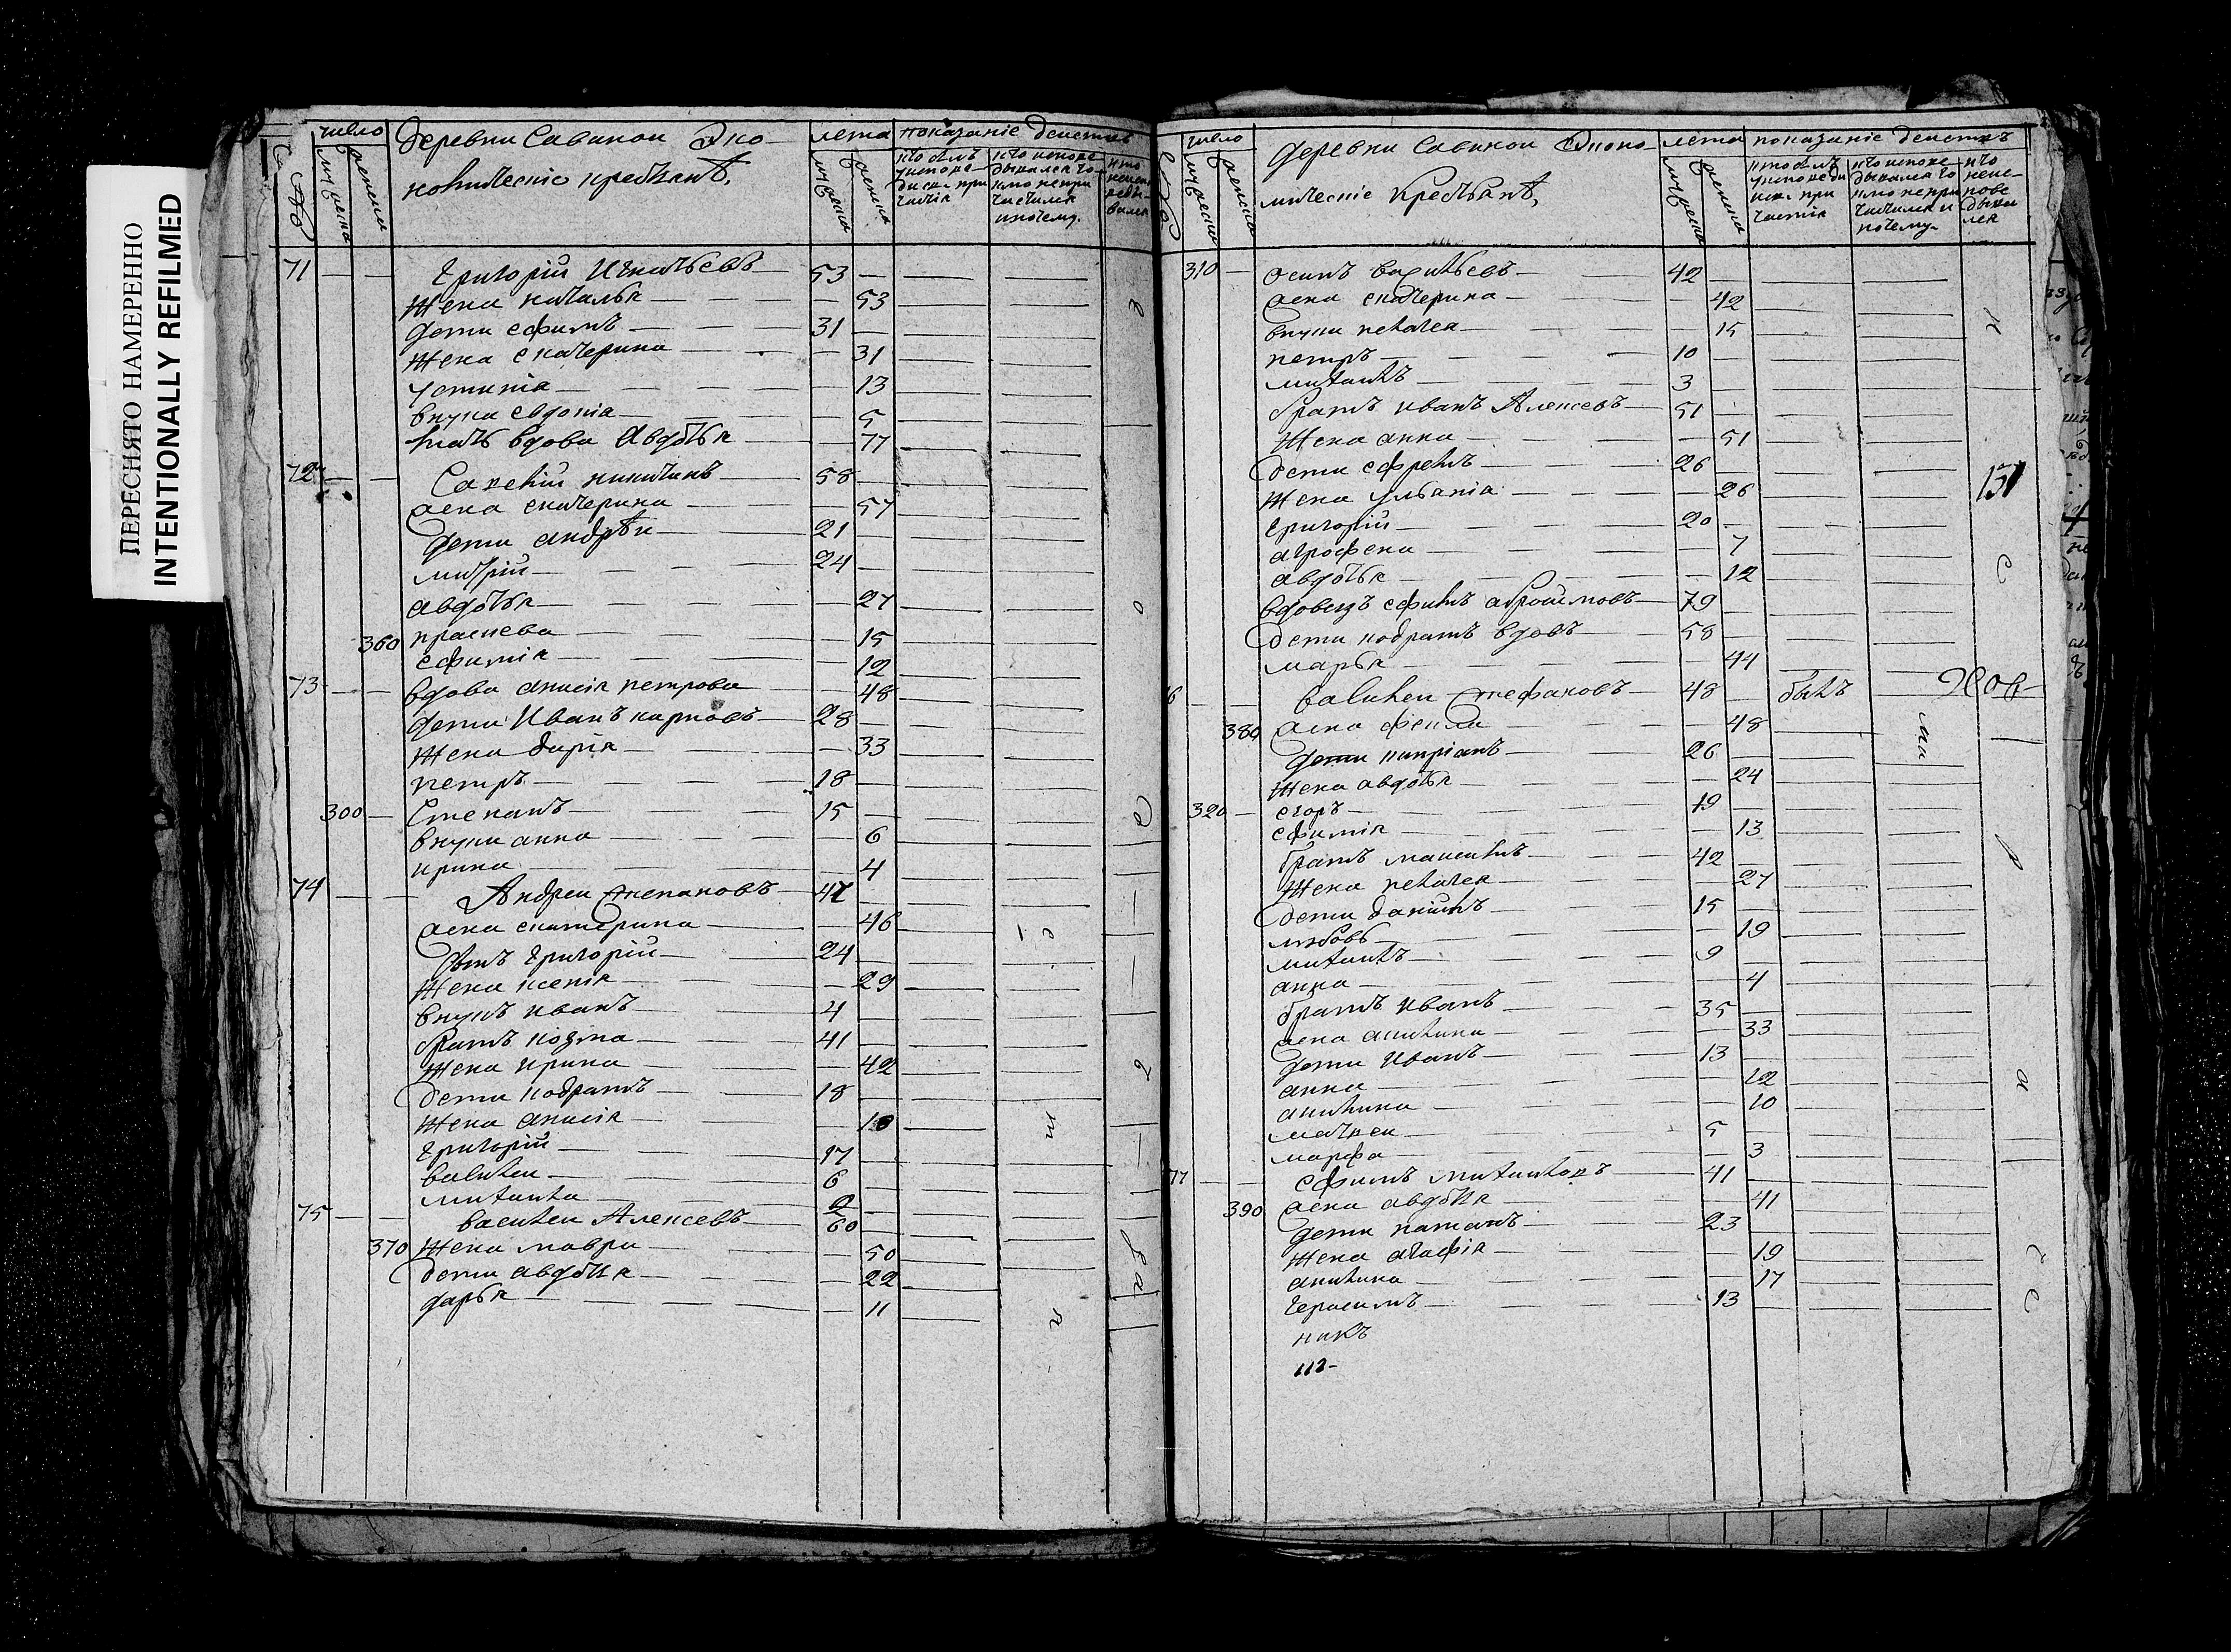 ПЕРЕСНЯТО НАМЕРЕННО
INTENTIONALLY REFILMED
число
Деревни Савиной Эко
лета
показаніе действъ
номическіе крестьянѣ,
71 Григорій Игнатьевъ 53
Жена наталья 53
дети ефимъ 31
Жена екатерина 31
устинія 13
внука евдокія 5
мать вдова Авдотья 77
72 никитинъ 58
жена екатерина 57
дети андрѣи 21
митрій 24
авдотья 27
360 прасковa 15
ефимія 12
73 вдова анисія петрова 48
дети Иванъ карповъ 28
Жена дарія 33
петръ 18
300 Степанъ 15
внуки анна 6
ирина 4
74 Андреи степановъ 47
жена екатерина 46
сынъ григорій 24
Жена ксенія 29
внукъ иванъ 4
братъ козма 41
Жена ирина 42
дети кодратъ 18
Жена анисія
Григорій 17
василеи 6
михаила 2
75 василеи Алексевъ 60
370 Жена мавра 50
дети авдотья 22
дарья 11
число
Деревни Савиной Эконо
лета
показаніе действъ
мическіе крестьянѣ,
310 осипъ васильевъ 42
жена екатерина 42
внуки пелагея 15
петръ 10
михаилъ 3
братъ иванъ Алексевъ 51
Жена анна 51
дети ефремъ 26
Жена ульянія 26
131
григорій 20
агрофена 7
авдотья 12
вдовецъ ефимъ аброшмовъ 79
дети кодратъ вдовъ 58
марья 44
6 василеи стефановъ 48 былъ
380 жена фекла 48
дети кипріанъ 26
Жена авдотья 24
320 егоръ 19
ефимія 13
братъ максимъ 42
Жена пелагея 27
дети данилъ 15
любовь 19
михаилъ 9
анна 4
братъ иванъ 35
жена акилина 33
дети Иванъ 13
анна 12
акилина 10
матвеи 5
марфа 3
77 ефимъ михаиловъ 41
390 жена авдотья 41
дети потапъ 23
Жена агафія 19
акилина 17
герасимъ 13